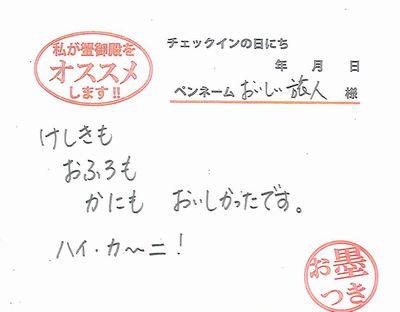 私が蟹御殿を
オススメ
します!!
チェックインの日にち
年 月 日
ペンネーム おいしい旅人 様
けしきも
おふろも
かにも おいしかったです。
ハイ・カ〜ニ!
お墨
つき